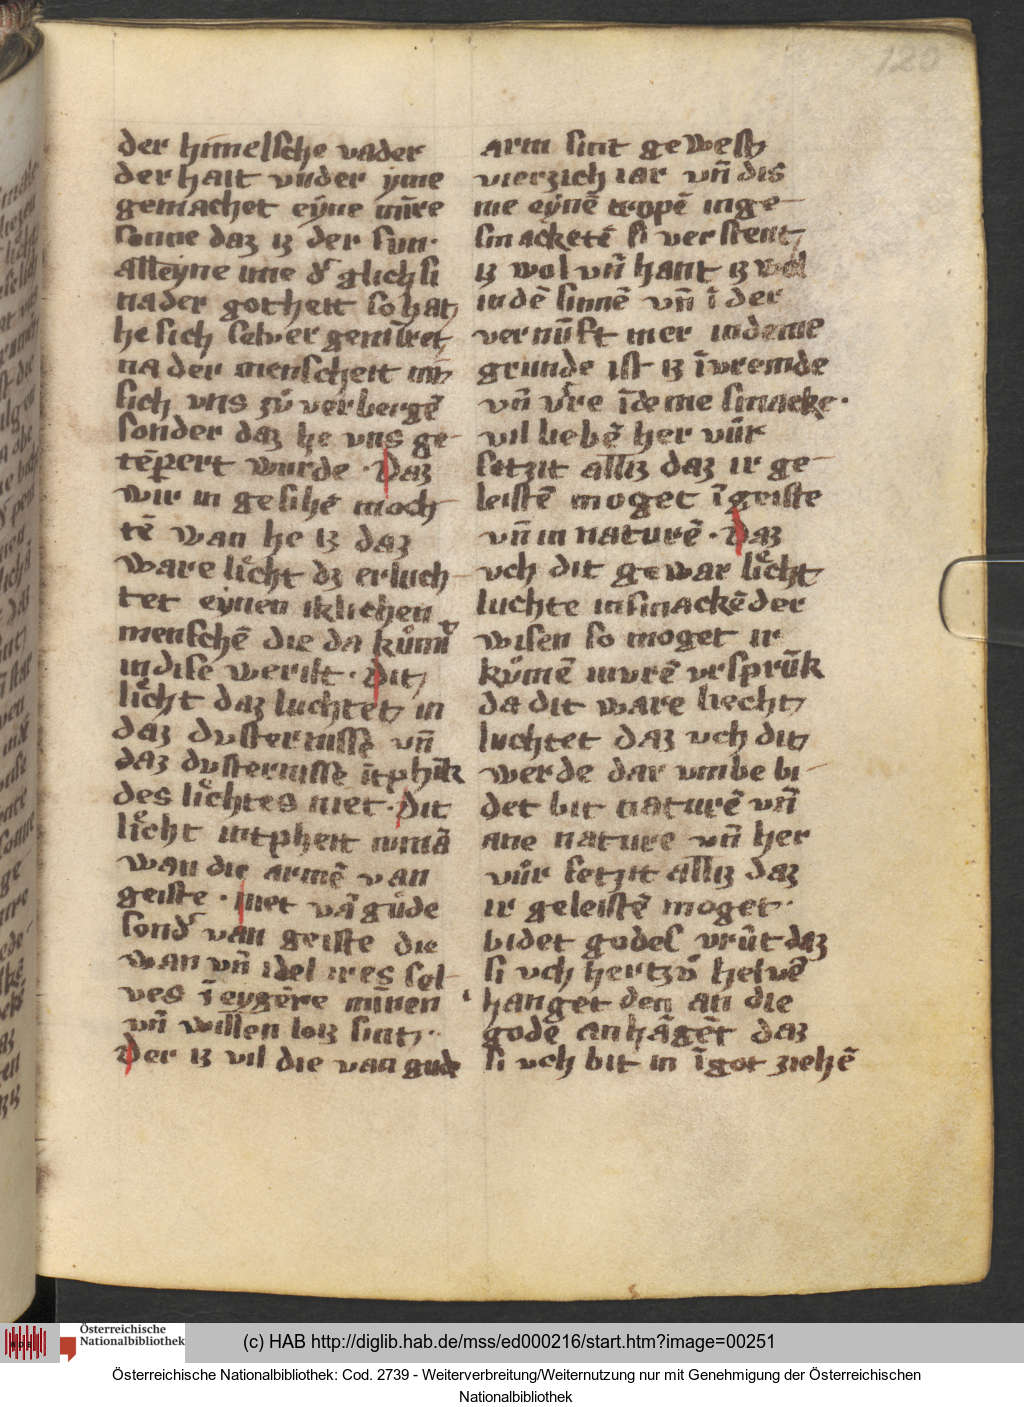 120
der himelsche vader
der hait vnder yme
gemachet eyne mīre
sonne daz iz der sun·
alleyne ime d' glich si
na der gotheit so hat
he sich seluer gemīret
na der menscheit
sich vns zů verbergē
sonder daz he vns ge-
tēpert wurde · Daz
wir in gesihē moch-
tē wan he iz daz
ware lícht dz erluch-
tet eynen iklichen
menschē die da kůmt
in dise werilt · Dit
licht daz luchtet in
daz dusternisse vn̄
daz dusternisse
des lichtes niet · Dit
licht intpheit nimā
wan die armē van
geiste · niet vā gůde
sond' van geiste die
wan vn̄ idel ires sel-
ves ī eygēre mīnen
vn̄ willen loiz sint ·
Der iz vil die van gude
arm sint geWest
vierzich iar vn̄ dis
nie eynē tropē inge-
sinacketē si verstent
iz wol vn̄ hant iz wol
in dē sinnē vn̄ ī der
vernūft mer in deme
grunde ist iz ī vremde
vn̄ v̊re ī deme smacke·
vil liebē her vůr
setzit alliz daz ir ge-
leistē moget ī geiste
vn̄ in naturē · Daz
vch dit gewar licht
luchte in smackēder
wisen so moget ir
kůmē in vrē vrsprūk
da dit ware liecht
luchtet daz vch dit
werde dar vmbe bi-
det bit naturē vn̄
ane nature vn̄ her
vůr setzit alliz daz
ir geleistē moget·
bidet godes vrūt daz
si vch hertzů helvē
hanget den an die
gode anhāgēt daz
si vch bit in ī got ziehē
Österreichische
Nationalbibliothek
(c) HAB http://diglib.hab.de/mss/ed000216/start.htm?image=00251
Österreichische Nationalbibliothek: Cod. 2739 - Weiterverbreitung/Weiternutzung nur mit Genehmigung der Österreichischen
Nationalbibliothek